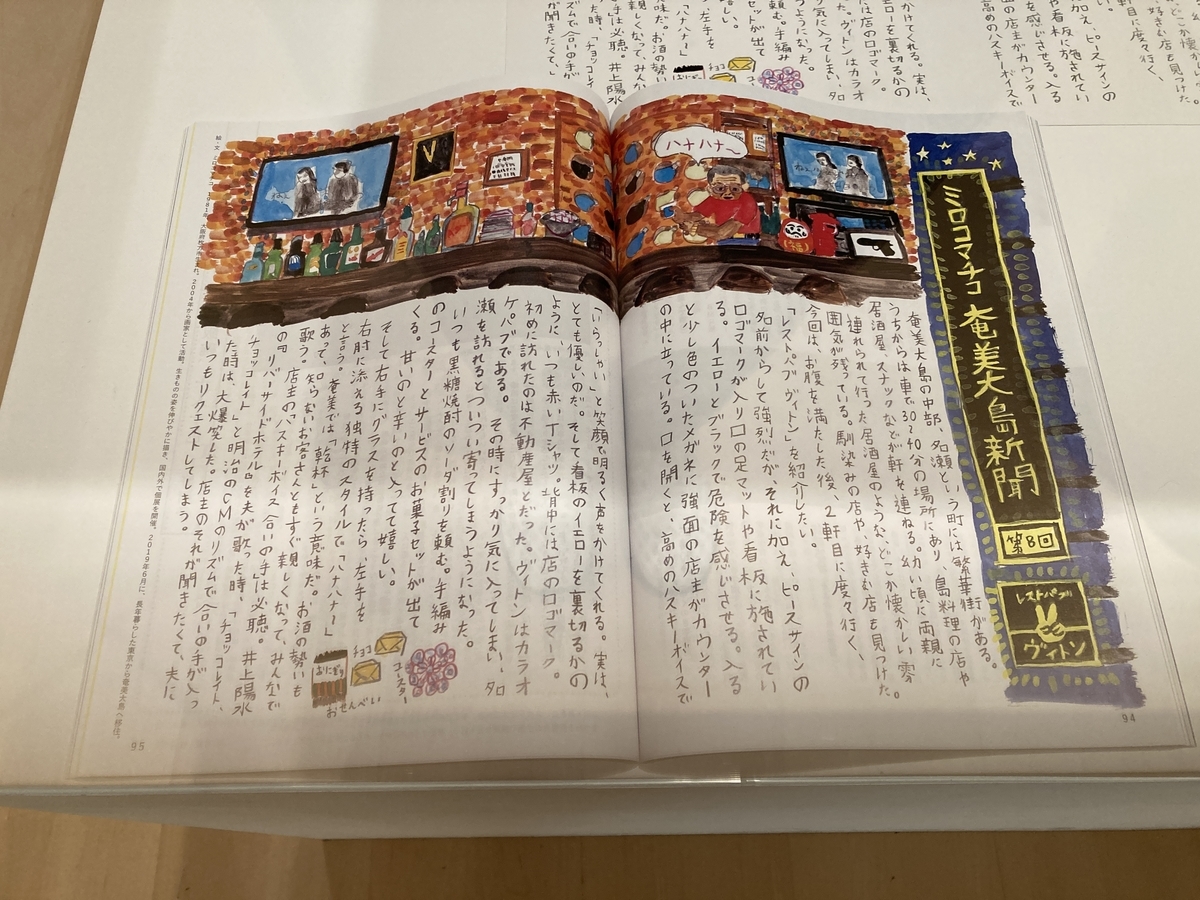 ミロコマチコ 奄美大島新聞
第8回
レストパブ
ヴィトン
ハナハナ〜
奄美大島の中部、名瀬という町には繁華街がある。
うちからは車で30〜40分の場所にあり、島料理の店や
居酒屋、スナックなどが軒を連ねる。幼い頃に両親に
連れられて行った居酒屋のような、どこか懐かしい雰
囲気が残っている。馴染みの店や、好きな店を見つけた。
今回は、お腹を満たした後、2軒目に度々行く、
「レストパブ ヴィトン」を紹介したい。
名前からして強烈だが、それに加え、ピースサインの
ロゴマークが入り口の足マットや看板に施されてい
る。イエローとブラックで危険を感じさせる。入る
と少し色のついたメガネに強面の店主がカウンター
の中に立っている。口を開くと、高めのハスキーボイスで
「いらっしゃい」と笑顔で明るく声をかけてくれる。実は、
とても優しいのだ。そして看板のイエローを裏切るかの
ように、いつも赤いTシャツ。背中には店のロゴマーク。
初めに訪れたのは不動産屋とだった。ヴィトンはカラオ
ケパブである。その時にすっかり気に入ってしまい、名
瀬を訪れるとついつい寄ってしまうようになった。
いつも黒糖焼酎のソーダ割りを頼む。手編み
のコースターとサービスのお菓子セットが出て
くる。甘いのと辛いのと入ってて嬉しい。
そして右手にグラスを持ったら、左手を
右肘に添える独特のスタイルで「ハナハナ〜」
と言う。奄美では「乾杯」という意味だ。お酒の勢いも
あって、知らないお客さんともすぐ親しくなって、みんなで
歌う。店主のハスキーボイス合いの手は必聴。井上陽水
の『リバーサイドホテル』を夫が歌った時、「チョッコレイト、
チョッコレイト」と明治のCMのリズムで合いの手が入っ
た時は、大爆笑した。店主のそれが聞きたくて、夫に
いつもリクエストしてしまう。
チョコ
コースター
おにぎり
おせんべい
V
ねぇ
福
2004年から画家として活動。生きものの姿を伸びやかに描き、国内外で個展を開催。2019年6月に、長年暮らした東京から奄美大島へ移住。
94
95